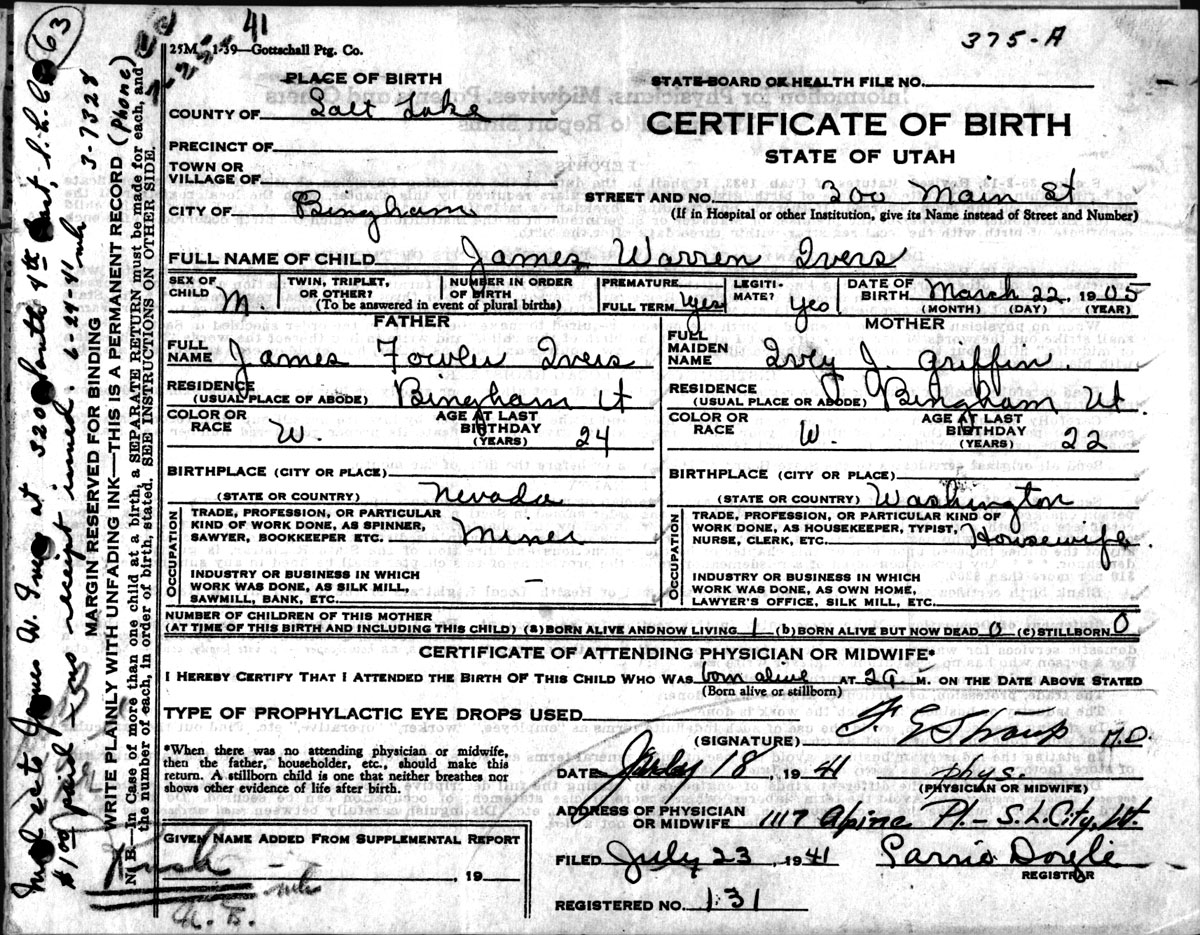 63
41
375-A
25M 1-39—Gottschall Ptg. Co.
PLACE OF BIRTH
STATE BOARD OF HEALTH FILE NO.
COUNTY OF Salt Lake
CERTIFICATE OF BIRTH
PRECINCT OF
STATE OF UTAH
TOWN OR
VILLAGE OF
STREET AND NO. 300 Main St
CITY OF Bingham
(If in Hospital or other Institution, give its Name instead of Street and Number)
FULL NAME OF CHILD James Warren Ivers
SEX OF CHILD M.
TWIN, TRIPLET, OR OTHER?
NUMBER IN ORDER OF BIRTH
(To be answered in event of plural births)
PREMATURE
FULL TERM yes
LEGITIMATE? yes
DATE OF BIRTH March 22, 1905
(MONTH) (DAY) (YEAR)
FATHER
FULL NAME James Fowler Ivers
RESIDENCE (USUAL PLACE OF ABODE) Bingham Ut
COLOR OR RACE W.
AGE AT LAST BIRTHDAY (YEARS) 24
BIRTHPLACE (CITY OR PLACE)
(STATE OR COUNTRY) Nevada
OCCUPATION
TRADE, PROFESSION, OR PARTICULAR
KIND OF WORK DONE, AS SPINNER,
SAWYER, BOOKKEEPER ETC. Miner
INDUSTRY OR BUSINESS IN WHICH
WORK WAS DONE, AS SILK MILL,
SAWMILL, BANK, ETC. —
MOTHER
FULL MAIDEN NAME Ivey J. Griffin.
RESIDENCE (USUAL PLACE OR ABODE) Bingham Ut.
COLOR OR RACE W.
AGE AT LAST BIRTHDAY (YEARS) 22
BIRTHPLACE (CITY OR PLACE)
(STATE OR COUNTRY) Washington
OCCUPATION
TRADE, PROFESSION, OR PARTICULAR KIND OF
WORK DONE, AS HOUSEKEEPER, TYPIST,
NURSE, CLERK, ETC. Housewife.
INDUSTRY OR BUSINESS IN WHICH
WORK WAS DONE, AS OWN HOME,
LAWYER'S OFFICE, SILK MILL, ETC.
NUMBER OF CHILDREN OF THIS MOTHER
(AT TIME OF THIS BIRTH AND INCLUDING THIS CHILD) (a) BORN ALIVE AND NOW LIVING 1 (b) BORN ALIVE BUT NOW DEAD 0 (c) STILLBORN 0
CERTIFICATE OF ATTENDING PHYSICIAN OR MIDWIFE*
I HEREBY CERTIFY THAT I ATTENDED THE BIRTH OF THIS CHILD WHO WAS born alive AT 2 a M. ON THE DATE ABOVE STATED
(Born alive or stillborn)
TYPE OF PROPHYLACTIC EYE DROPS USED
(SIGNATURE) M.D.
*When there was no attending physician or midwife,
then the father, householder, etc., should make this
return. A stillborn child is one that neither breathes nor
shows other evidence of life after birth.
DATE July 18, 1941 phys.
(PHYSICIAN OR MIDWIFE)
ADDRESS OF PHYSICIAN OR MIDWIFE 1117 Alpine Pl - S.L. City, Ut.
GIVEN NAME ADDED FROM SUPPLEMENTAL REPORT
, 19
FILED July 23, 1941
REGISTRAR
REGISTERED NO. 131
Rush
MARGIN RESERVED FOR BINDING
WRITE PLAINLY WITH UNFADING INK—THIS IS A PERMANENT RECORD (Phone) 3-7328
N. B.—In Case of more than one child at a birth, a SEPARATE RETURN must be made for each, and
the number of each, in order of birth, stated. SEE INSTRUCTIONS ON OTHER SIDE.
$1.00 paid - no receipt issued. 6-24-41 mh